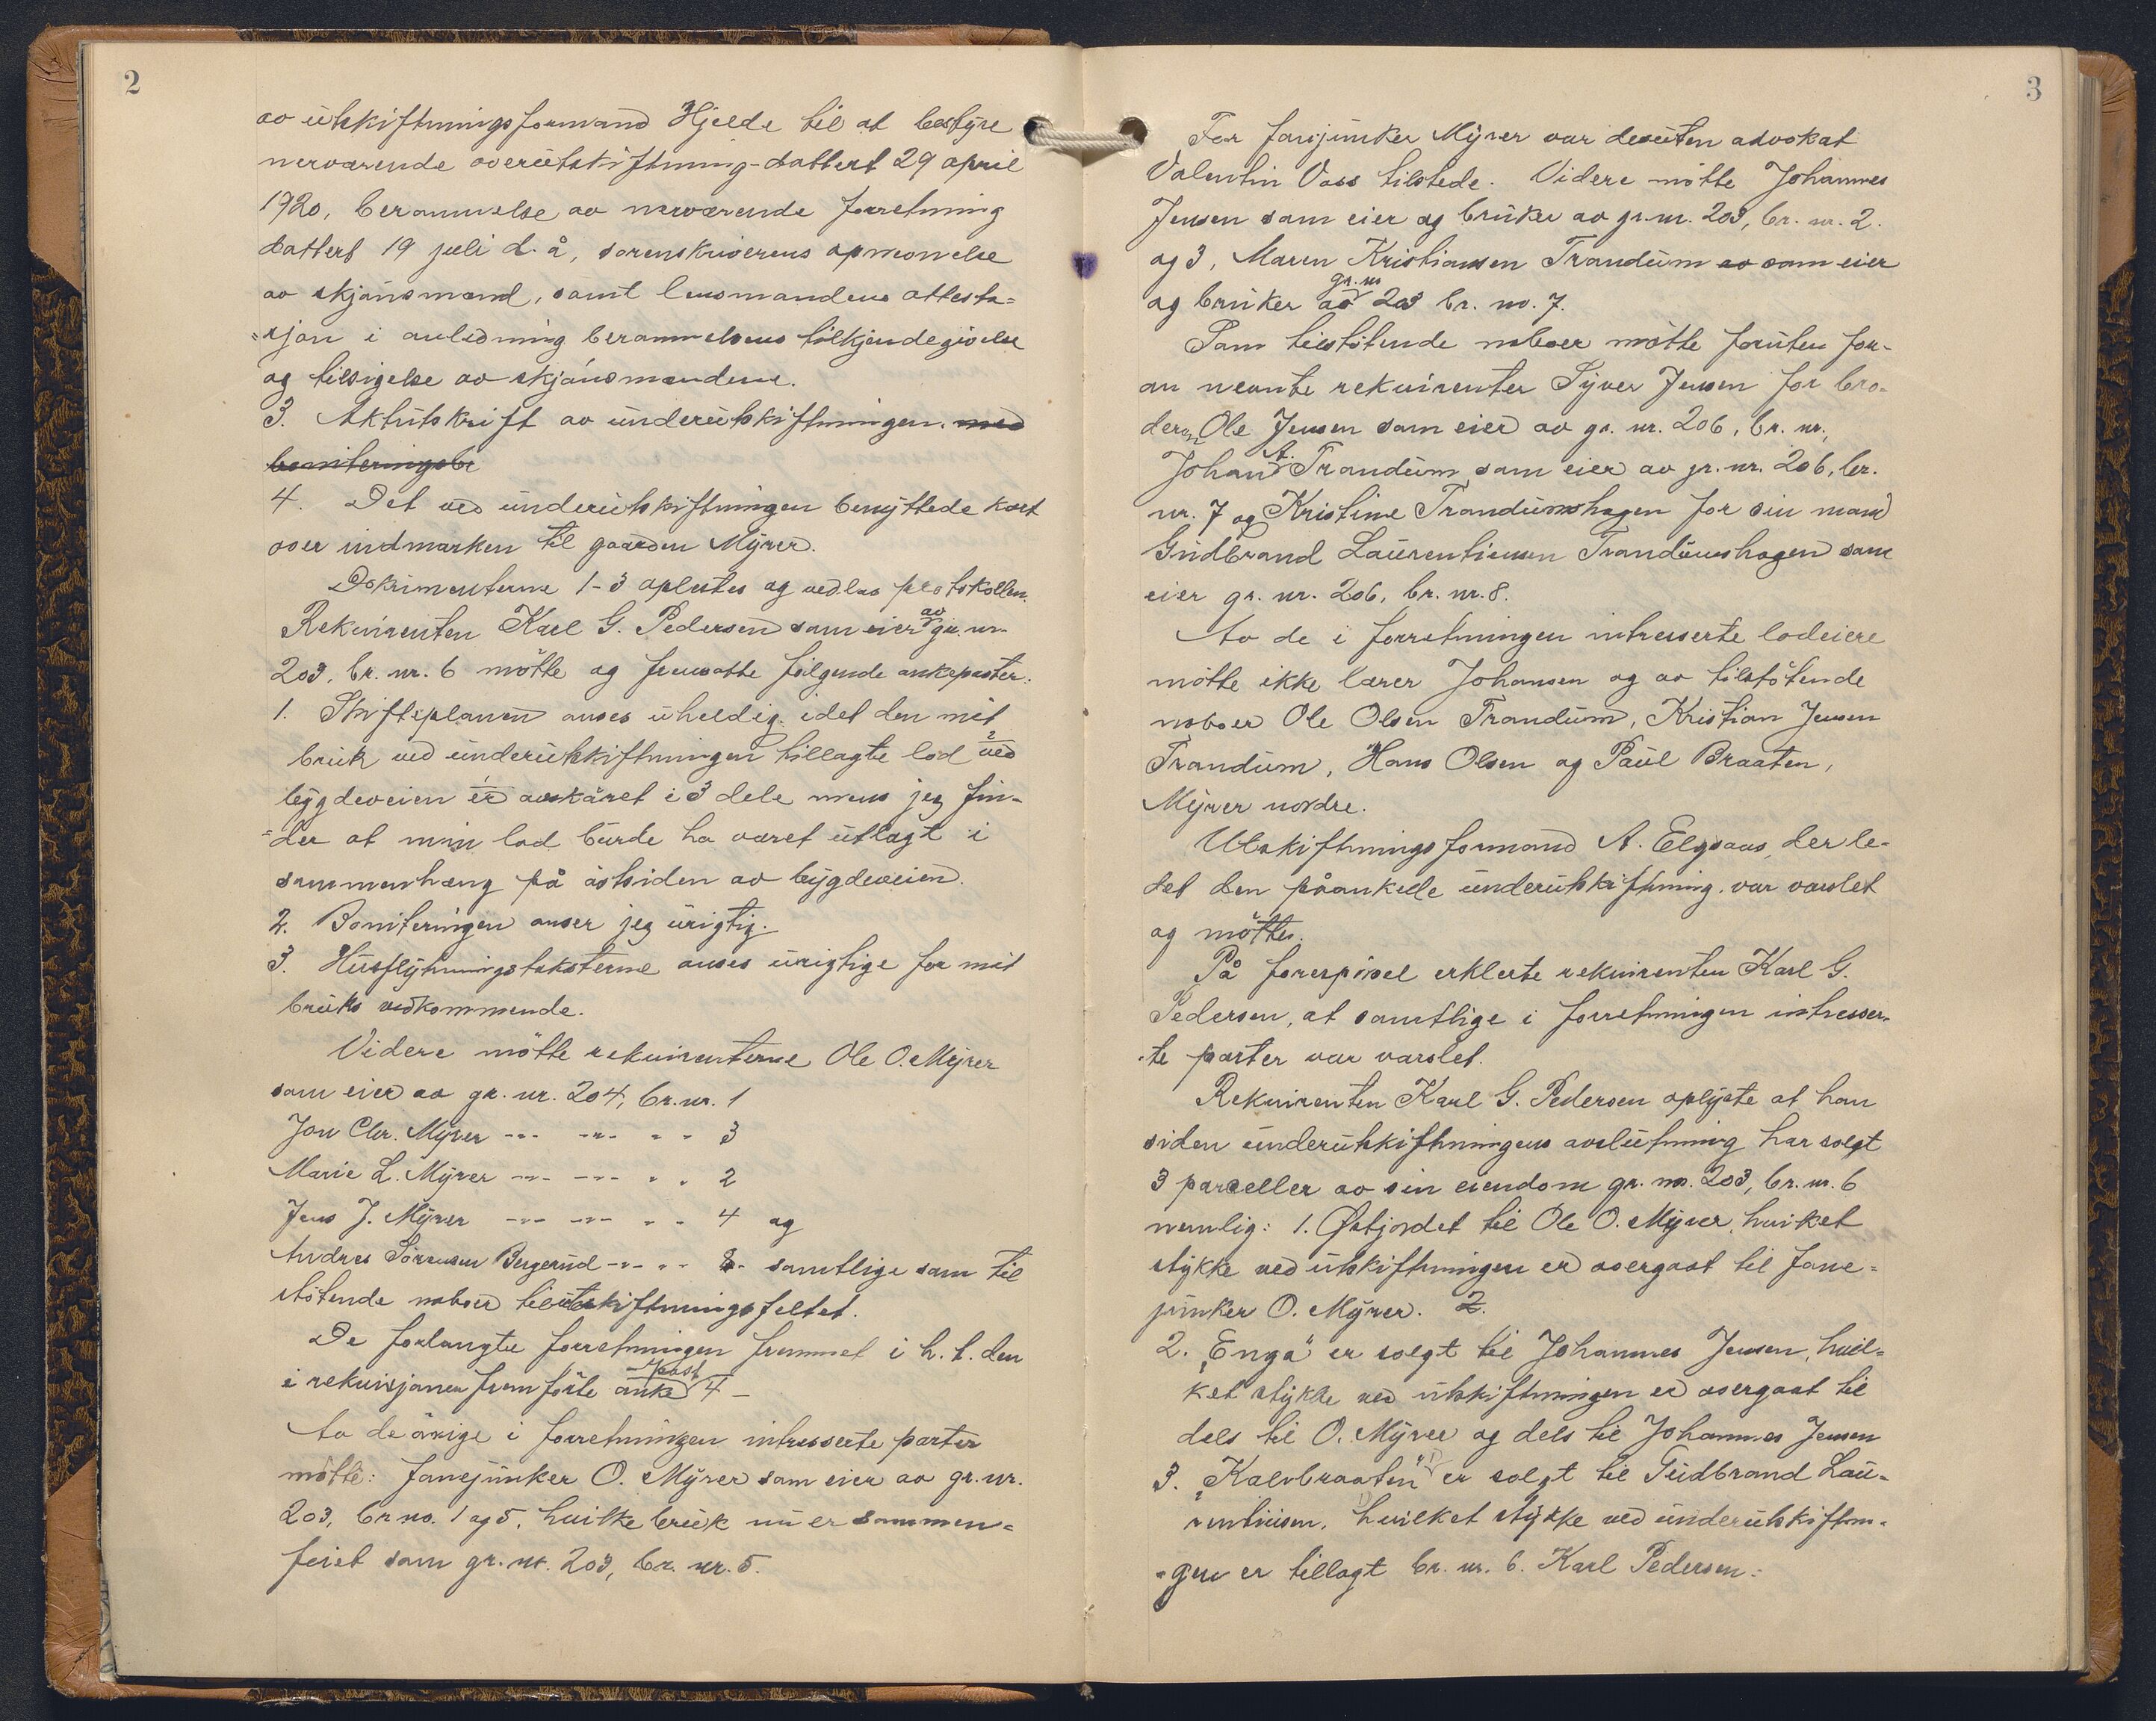 2
av utskiftningsformand Hjelde til at bestyre
nerværende overutskiftning - dattert 29 april
1920, berammelse av nerværende forretning
dattert 19 juli d. å, sorenskriverens opnevnelse
av skjønsmænd, samt lensmandens attesta=
=sjon i anledning berammelsens tilkjendegivelse
og tilsigelse av skjønsmændene.
3. Aktutskrift av underutskiftningen. med
boniteringsbe
4. Det ved underutskiftningen benyttede kart
over indmarken til gaarden Myrer.
Dokumenterne 1-3 oplestes og vedlas protokollen.
Rekvirenten Karl G. Pedersen som eier av gr. nr.
203, br. nr. 6 møtte og fremsatte følgende ankeposter:
1. Skifteplanen anses uheldig idet den mit
bruk ved underutskiftningen tillagte lod ved
bygdeveien er avskåret i 3 dele mens jeg fin-
=der at min lod burde ha været utlagt i
sammenheng på østsiden av bygdeveien.
2. Boniteringen anser jeg urigtig.
3. Husflytningstaksterne anses urigtige for mit
bruks vedkommende.
Videre møtte rekvirenterne Ole O. Myrer
som eier av gr. nr. 204, br. nr. 1
Jon Chr. Myrer -"- -"- " " 3
Marie L. Myrer -"- -"- " " 2
Jens J. Myrer -"- -"- " " 4 og
Andres Sørensen Bergerud -"- " " 8 - samtlige som til
støtende naboer til utskiftningsfeltet.
De forlangte forretningen fremmet i h. t. den
i rekvisjonen fremførte anke post 4 -
Av de øvrige i forretningen intresserte parter
møtte: Fanejunker O. Myrer som eier av gr. nr.
203, br no. 1 og 5, hvilke bruk nu er sammen=
føiet som gr. nr. 203, br. nr. 5.
3
For fanejunker Myrer var desuten advokat
Valentin Voss tilstede. Videre møtte Johannes
Jensen som eier og bruker av gr. nr. 203, br. nr. 2.
og 3, Maren Kristiansen Trandum av som eier
og bruker av gr. nr 203 br. no. 7.
Som tilstøtende naboer møtte foruten for-
an nevnte rekvirenter Syver Jensen for bro-
deren Ole Jensen som eier av gr. nr. 206, br. nr.,
Johan A. Trandum som eier av gr. nr. 206, br.
nr. 7 og Kristine Trandumshagen for sin mand
Gudbrand Laurentiusen Trandumshagen som
eier gr. nr. 206, br. nr. 8.
Av de i forretningen intresserte lodeiere
møtte ikke Johansen og av tilstøtende
naboer Ole Olsen Trandum, Kristian Jensen
Trandum, Hans Olsen og Paul Braaten,
Myrer nordre.
Utskiftningsformand A. Elgsaas, der le-
det den påankede underutskiftning, var varslet
og møtte.
På forespørsel erklerte rekvirenten Karl G.
Pedersen, at samtlige i forretningen intresser-
te parter var varslet.
Rekvirenten Karl G. Pedersen oplyste at han
siden underutskiftningens avslutning har solgt
3 parceller av sin eiendom gr. no. 203, br. nr. 6
nemlig: 1. Østjordet til Ole O. Myrer, hvilket
stykke ved utskiftningen er overgaat til fane=
junker O. Myrer. 2.
2. "Enga" er solgt til Johannes Jensen, hvil=
ket stykke ved utskiftningen er overgaat til
dels til O. Myrer og dels til Johannes Jensen
3. "Kalvbraaten" er solgt til Gudbrand Lau-
rentiusen, hvilket stykke ved underutskiftnin-
=gen er tillagt br. nr. 6. Karl Pedersen.